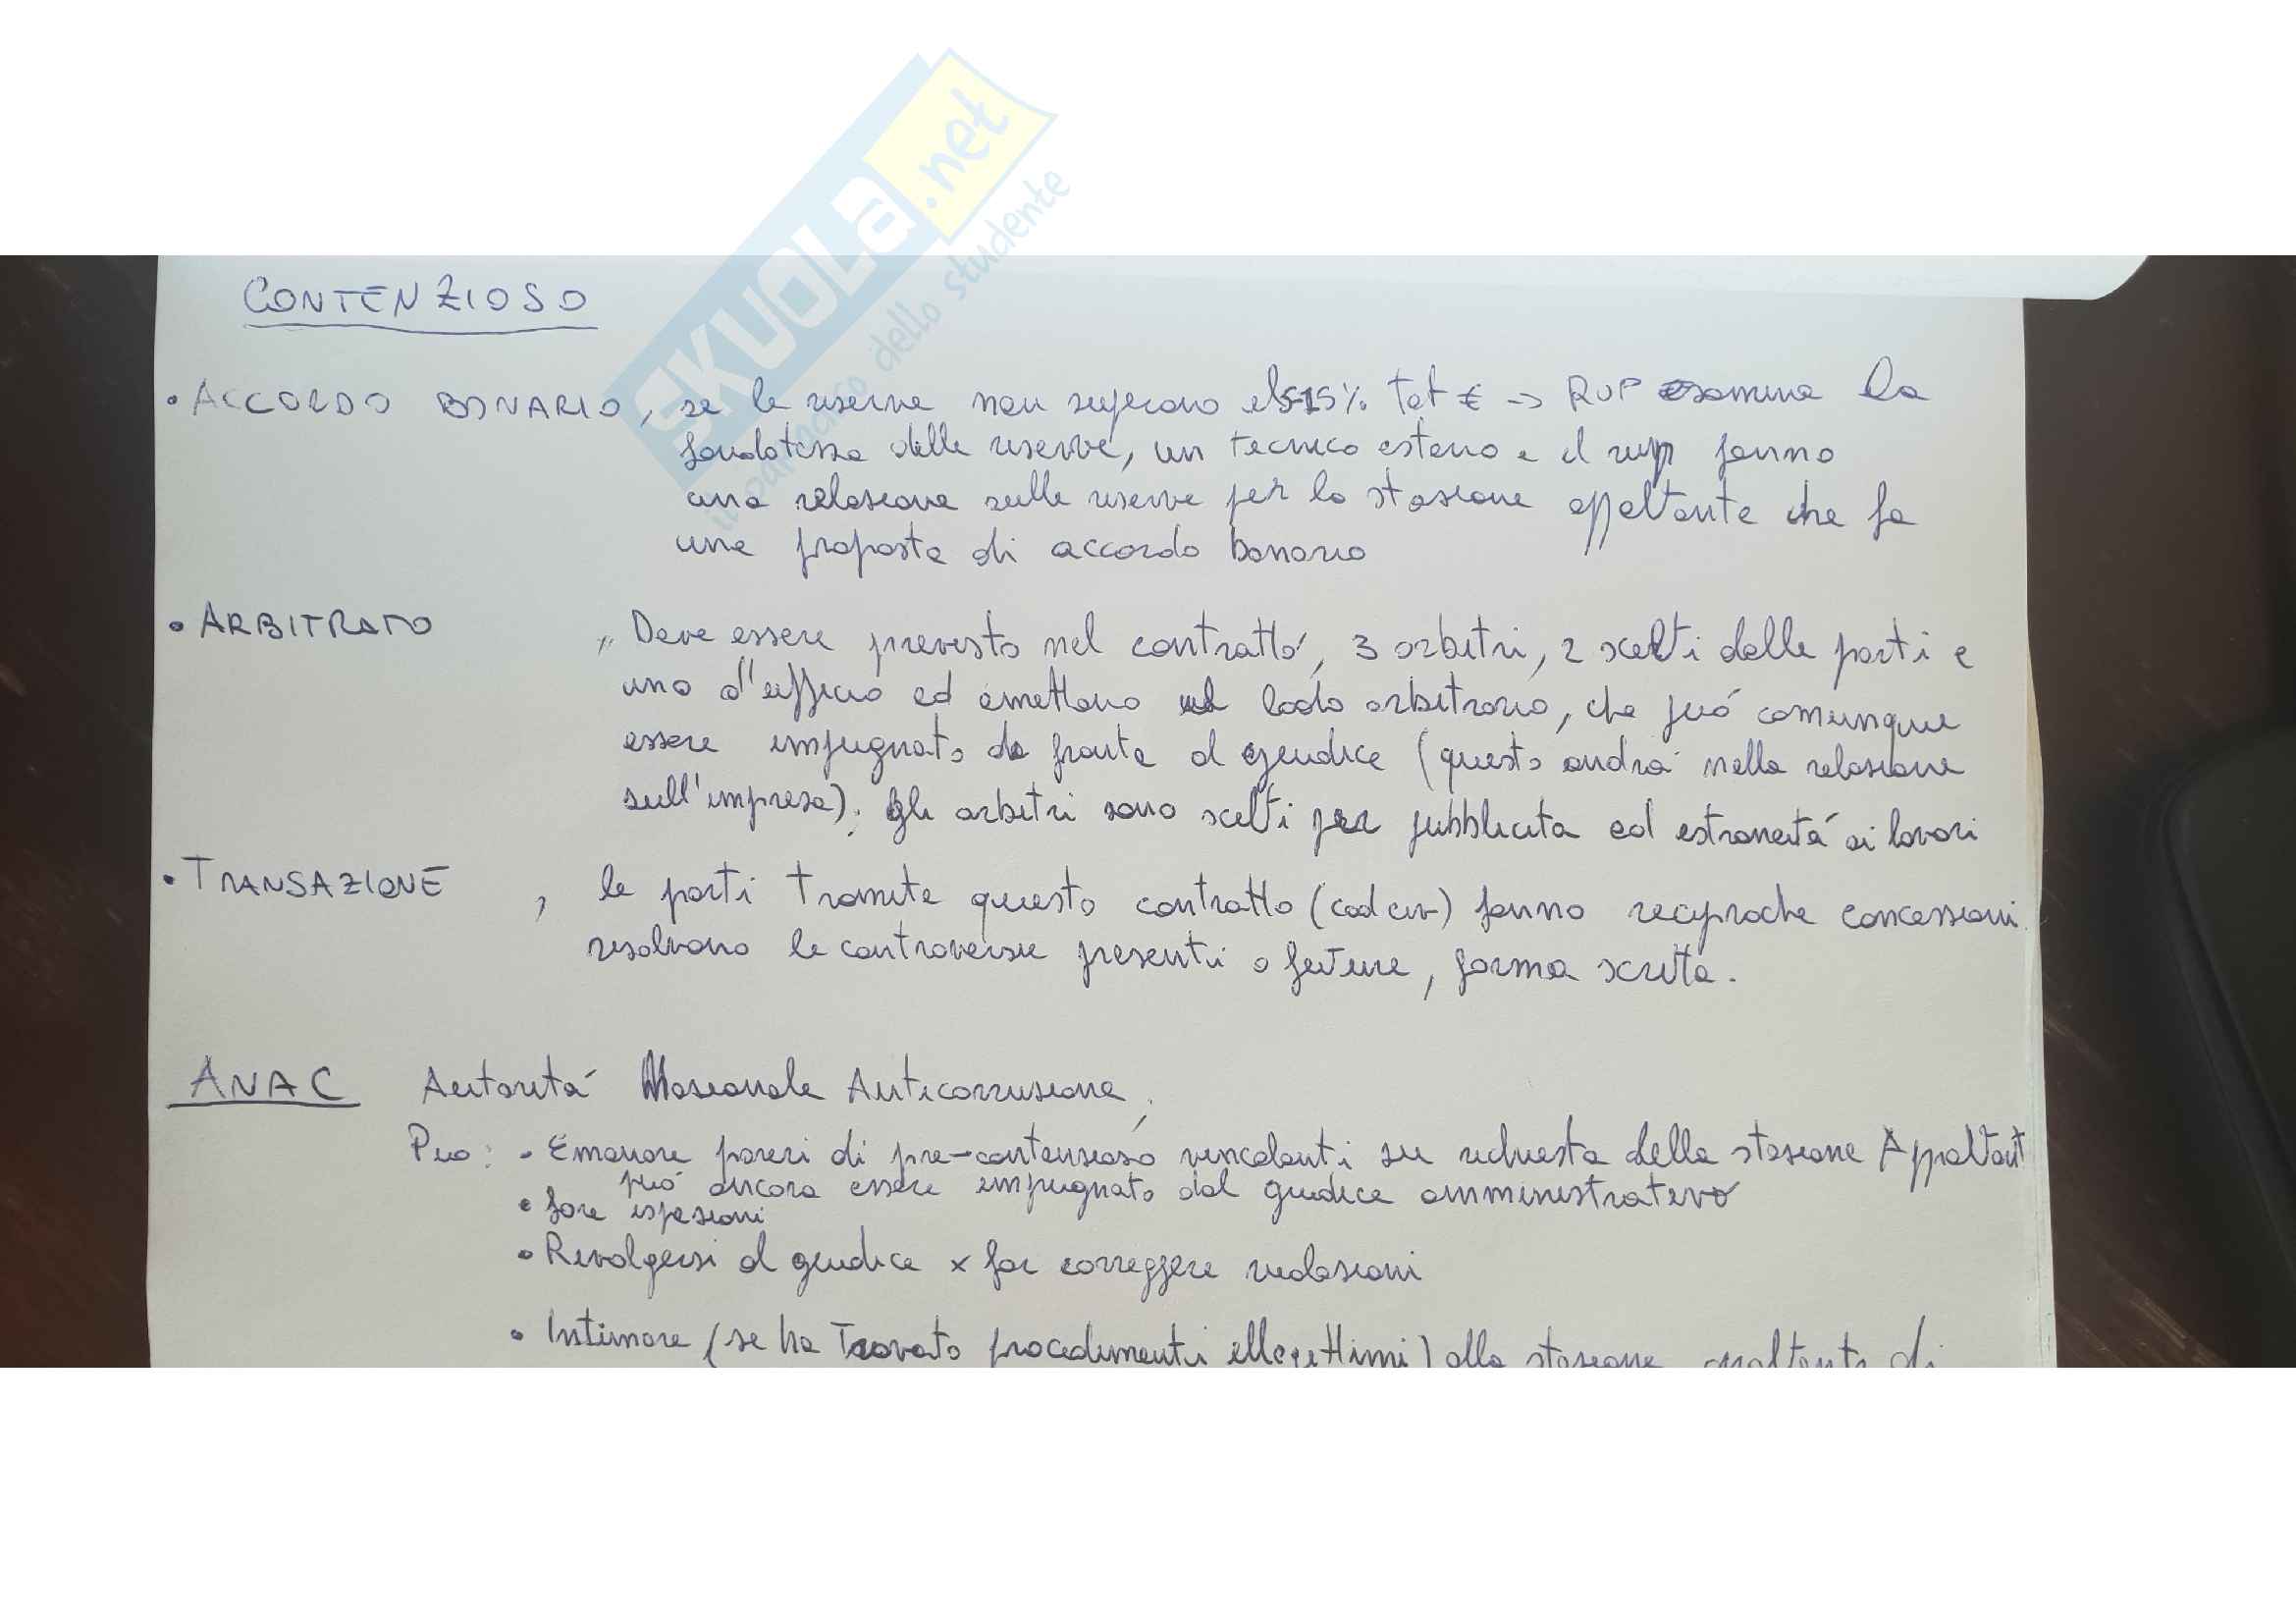 SKUOLA.net
il paradiso dello studente
CONTENZIOSO
• ACCORDO BONARIO, se le riserve non superano il 5-15% Tot € -> RUP esamina la
fondatezza delle riserve, un tecnico esterno e il rup fanno
una relazione sulle riserve per la stazione appaltante che fa
una proposta di accordo bonario
• ARBITRATO " Deve essere previsto nel contratto, 3 arbitri, 2 scelti dalle parti e
uno d'ufficio ed emettono lodo arbitrario, che può comunque
essere impugnato da fronte al giudice (questo andrà nella relazione
sull'impresa). Gli arbitri sono scelti per pubblicita ed estraneità ai lavori
• TRANSAZIONE , le parti tramite questo contratto (cod civ) fanno reciproche concessioni
risolvono le controversie presenti o future, forma scritta.
ANAC Autorità Nazionale Anticorruzione,
Può: • Emanare pareri di pre-contenzioso vincolanti su richiesta della stazione Appaltant
può ancora essere impugnato dal giudice amministrativo
• fare ispezioni
• Rivolgersi al giudice x far correggere violazioni
• Intimare (se ha trovato procedimenti illegittimi) alla stazione appaltante di